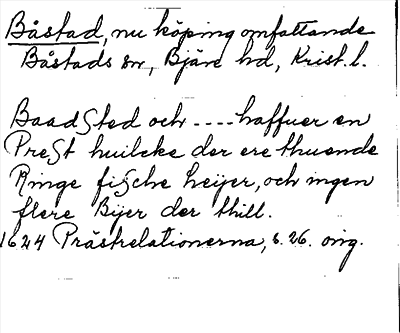 Båstad, nu köping omfattande
Båstads sn, Bjäre hd, Krist. l.
Baadsted och ---- haffuer en
Prest huilcke der ere thuende
Ringe fische leijer, och ingen
flere Bijer der thill.
1624 Prästrelationerna, s. 26. orig.